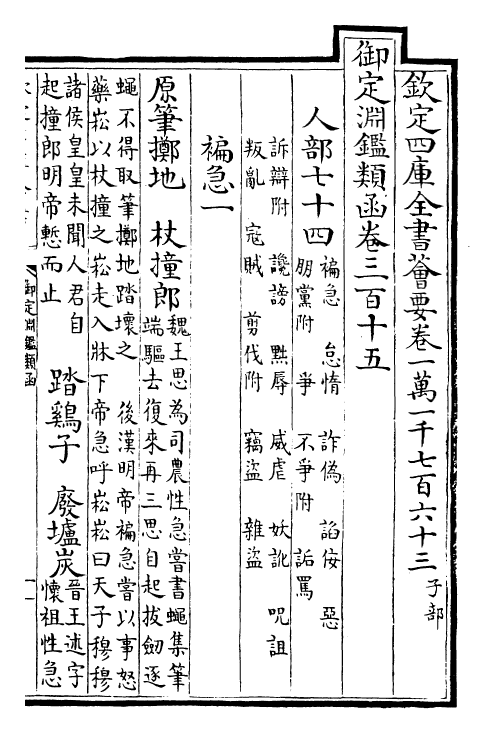 欽定四庫全書薈要卷一萬一千七百六十三 子部
御定淵鑑類函卷三百十五
人部七十四 褊急 怠惰 詐偽 諂佞 惡
朋黨附 爭 不爭附 詬罵
訴辯附 讒謗 㸃辱 威虐 妖訛 呪詛
叛亂 寇賊 剪伐附 竊盜 雜盜
褊急一
原筆擲地 杖撞郎 魏王思為司農性急嘗書蠅集筆
端驅去復來再三思自起拔劒逐
蠅不得取筆擲地踏壞之 後漢明帝褊急嘗以事怒
藥崧以杖撞之崧走入牀下帝急呼崧崧曰天子穆穆
諸侯皇皇未聞人君自
起撞郎明帝慙而止
踏鷄子 廢壚炭 晉王述字
懷祖性急
御定淵鑑類函